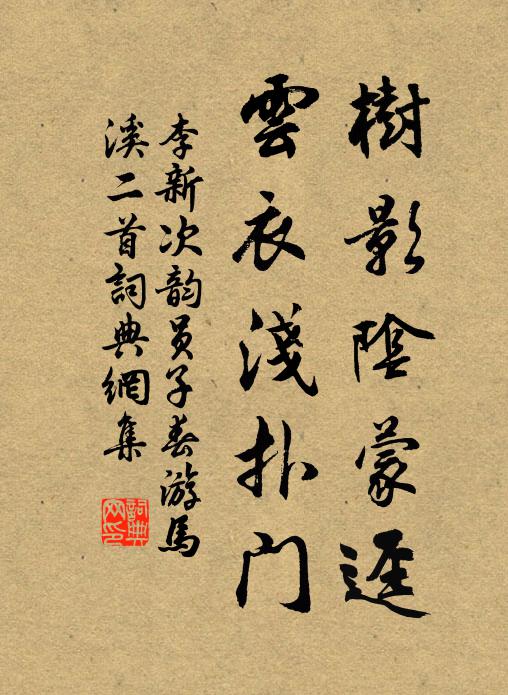 樹影陰蒙逕
雲衣淺扑門
李新次韵員子春游馬
溪二首詞典網集
詞典
网印